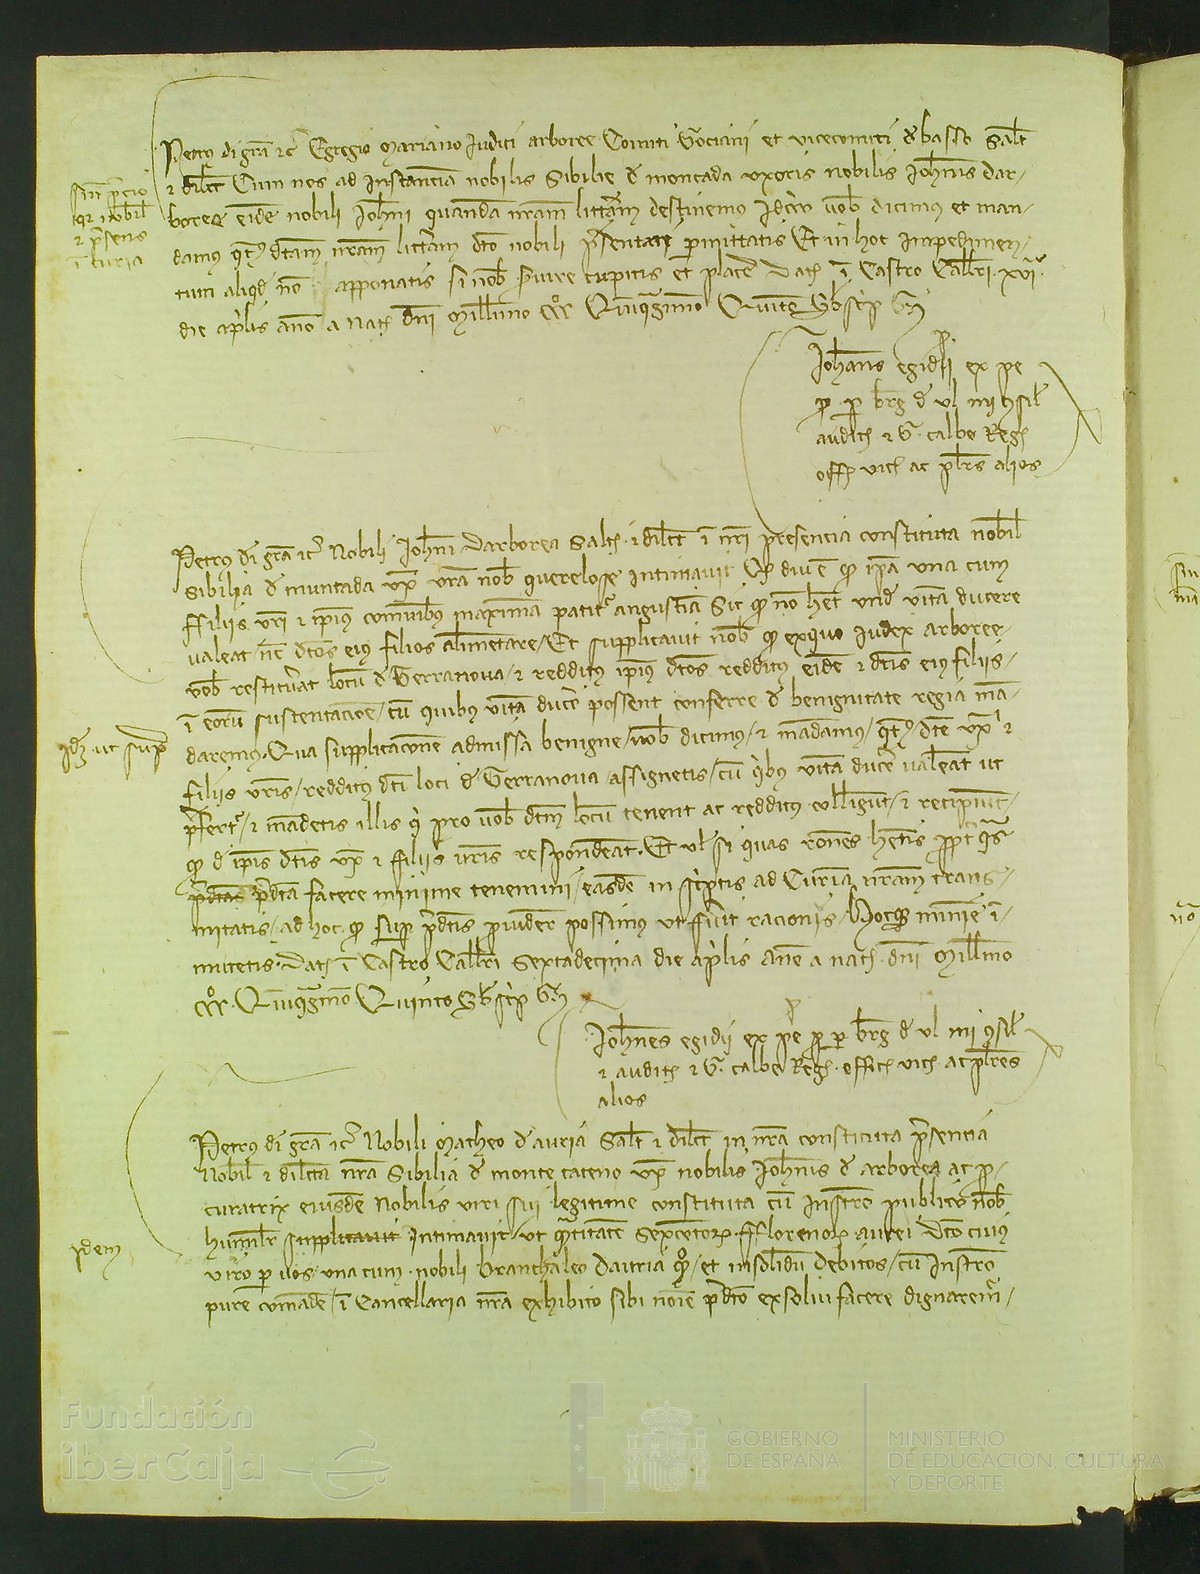 Petrus dei gra̅ etc̅ Egregio Mariano Iudici arboree Comiti Gociani et vicecomiti de basso Salt̅
sin̅ p̅cio
⁊ dilc̅t Cum nos ad instancia̅ nobilis Sibilie de moncada uxoris nobilis Ioh̅nis Dar-
q̅ nobil̅
boree eide̅ nobili Ioh̅ni quanda̅ nr̅am litt̅am destinemus Idcir̅ vob̅ dicimus et man-
⁊ p̅sens
damus q̅t dc̅am nr̅am litt̅am dc̅o nobili p̅sentari p̅mittatis Et in hoc impedimen-
i̅ curia
tum aliqd̅ no̅ apponatis si nob̅ s̅uire cupitis et place̅ Dat̅ i̅ Castro Call̅ri xvi̅a
die ap̅lis an̅o a Nat̅ dn̅i Mill̅imo CCC̊ Qui̅q̅gesimo Quinto Sb̅sc̅ip G̅
Ioh̅anes egidii ex p̅e
p̅ p̅ b̅rg̅ de ul mi ⁊sil̅
audit̅ ⁊ G. calbo Reg̅
off̅ vic̅ ac pl̅res alios
Petrus dei gra̅ etc̅ Nobili Ioh̅ni Darborea Salt̅ ⁊ dilc̅t i̅ nr̅i presencia constituta nobil̅
Sibilia de muntada ux̅ vr̅a nob̅ querelose intimavit Q̅ diu e̅ q̅ ip̅a una cum
ffiliis vr̅i ⁊ ip̅ius com̅uibus maxima̅ patit̅ angustia̅ Sic q̅ no̅ het̅ und̅ vita̅ ducere
valeat ne̅ dc̅os eius filios alime̅tare / Et supplicauit nob̅ q̅ exquo Iudex arboree /
vob̅ restituer̅at locu̅ de Terranova / ⁊ redditus ip̅ius dc̅os redditus eide̅ ⁊ dc̅is eius filiis /
i̅ eoru̅ sustentacio̅e / cu̅ quibus vita̅ duce̅ possent conferre de benignitate regia ma̅-
Ide̅ ut sup̅
daremus. Qua supplicac̅one̅ admissa benigne / vob̅ dicimus / ⁊ ma̅damus / q̅t̅ / dc̅e ux̅i ⁊
filiis vr̅is / redditus dc̅i loci de Terranova assignetis / cu̅ q̅bus vita̅ duce̅ valeat ut
p̅fert̅ / ⁊ ma̅detis illis q̅ pro vob̅ dc̅m locu̅ tenent ac redditus collig̅ut / ⁊ recipiu̅t /
q̅ de ip̅is dc̅is ux̅ ⁊ filiis vr̅is respondeat. Et ul̅ si quas ro̅nes het̅is p̅pt̅ q̅s
p̅dc̅as p̅dc̅a facere minime tenemini / easde̅ in sc̅iptis ad Curia̅ nr̅am trans-
mitatis / ad hoc q̅ sup̅ p̅dc̅is p̅uider̅ possimus ut fu̅it racionis / Hocq̅ minie̅ i̅-
mutetis. Dat̅ i̅ Castro Call̅ri Sextadecima die ap̅lis An̅o a nat̅ dn̅i Mill̅imo
CCC̊. Qui̅q̅gesimo Quinto Sb̅sc̅ip G̅
Ioh̅nes egidii ex p̅e p̅ p̅ b̅rg̅ de ul mi ⁊sil̅
⁊ audit̅ ⁊ G. calbo Reg̅. offic̅ vic̅ ac pl̅res
alios
Petrus dei gra̅ etc̅ Nobili Matheo de auria Salt̅ ⁊ dilc̅t in nr̅a constituta p̅sencia
Nobil̅ ⁊ dilc̅ta nr̅a Sibilia de monte cateno ux̅ nobilis Ioh̅nis de arborea ac p̅-
curatrix eiusde̅ Nobilis viri sui legitime constituta cu̅ inst̅ro publico nob̅
humil̅r supplicauit intimavit ut q̅titate̅ sexce̅tor̅ fflorenor̅ auri Dc̅o eius
Idem
viro p̅ vos una cum nobili branchaleo Dauria q̅ / et insolidu̅ debitos / cu̅ inst̅ro
pure com̅ade̅ / i̅ Cancellaria nr̅a exhibito sibi no̅ie p̅dc̅o exsolui facere dignarem̅ /
Fundación
iberCaja
GOBIERNO
DE ESPAÑA
MINISTERIO
DE EDUCACIÓN, CULTURA
Y DEPORTE